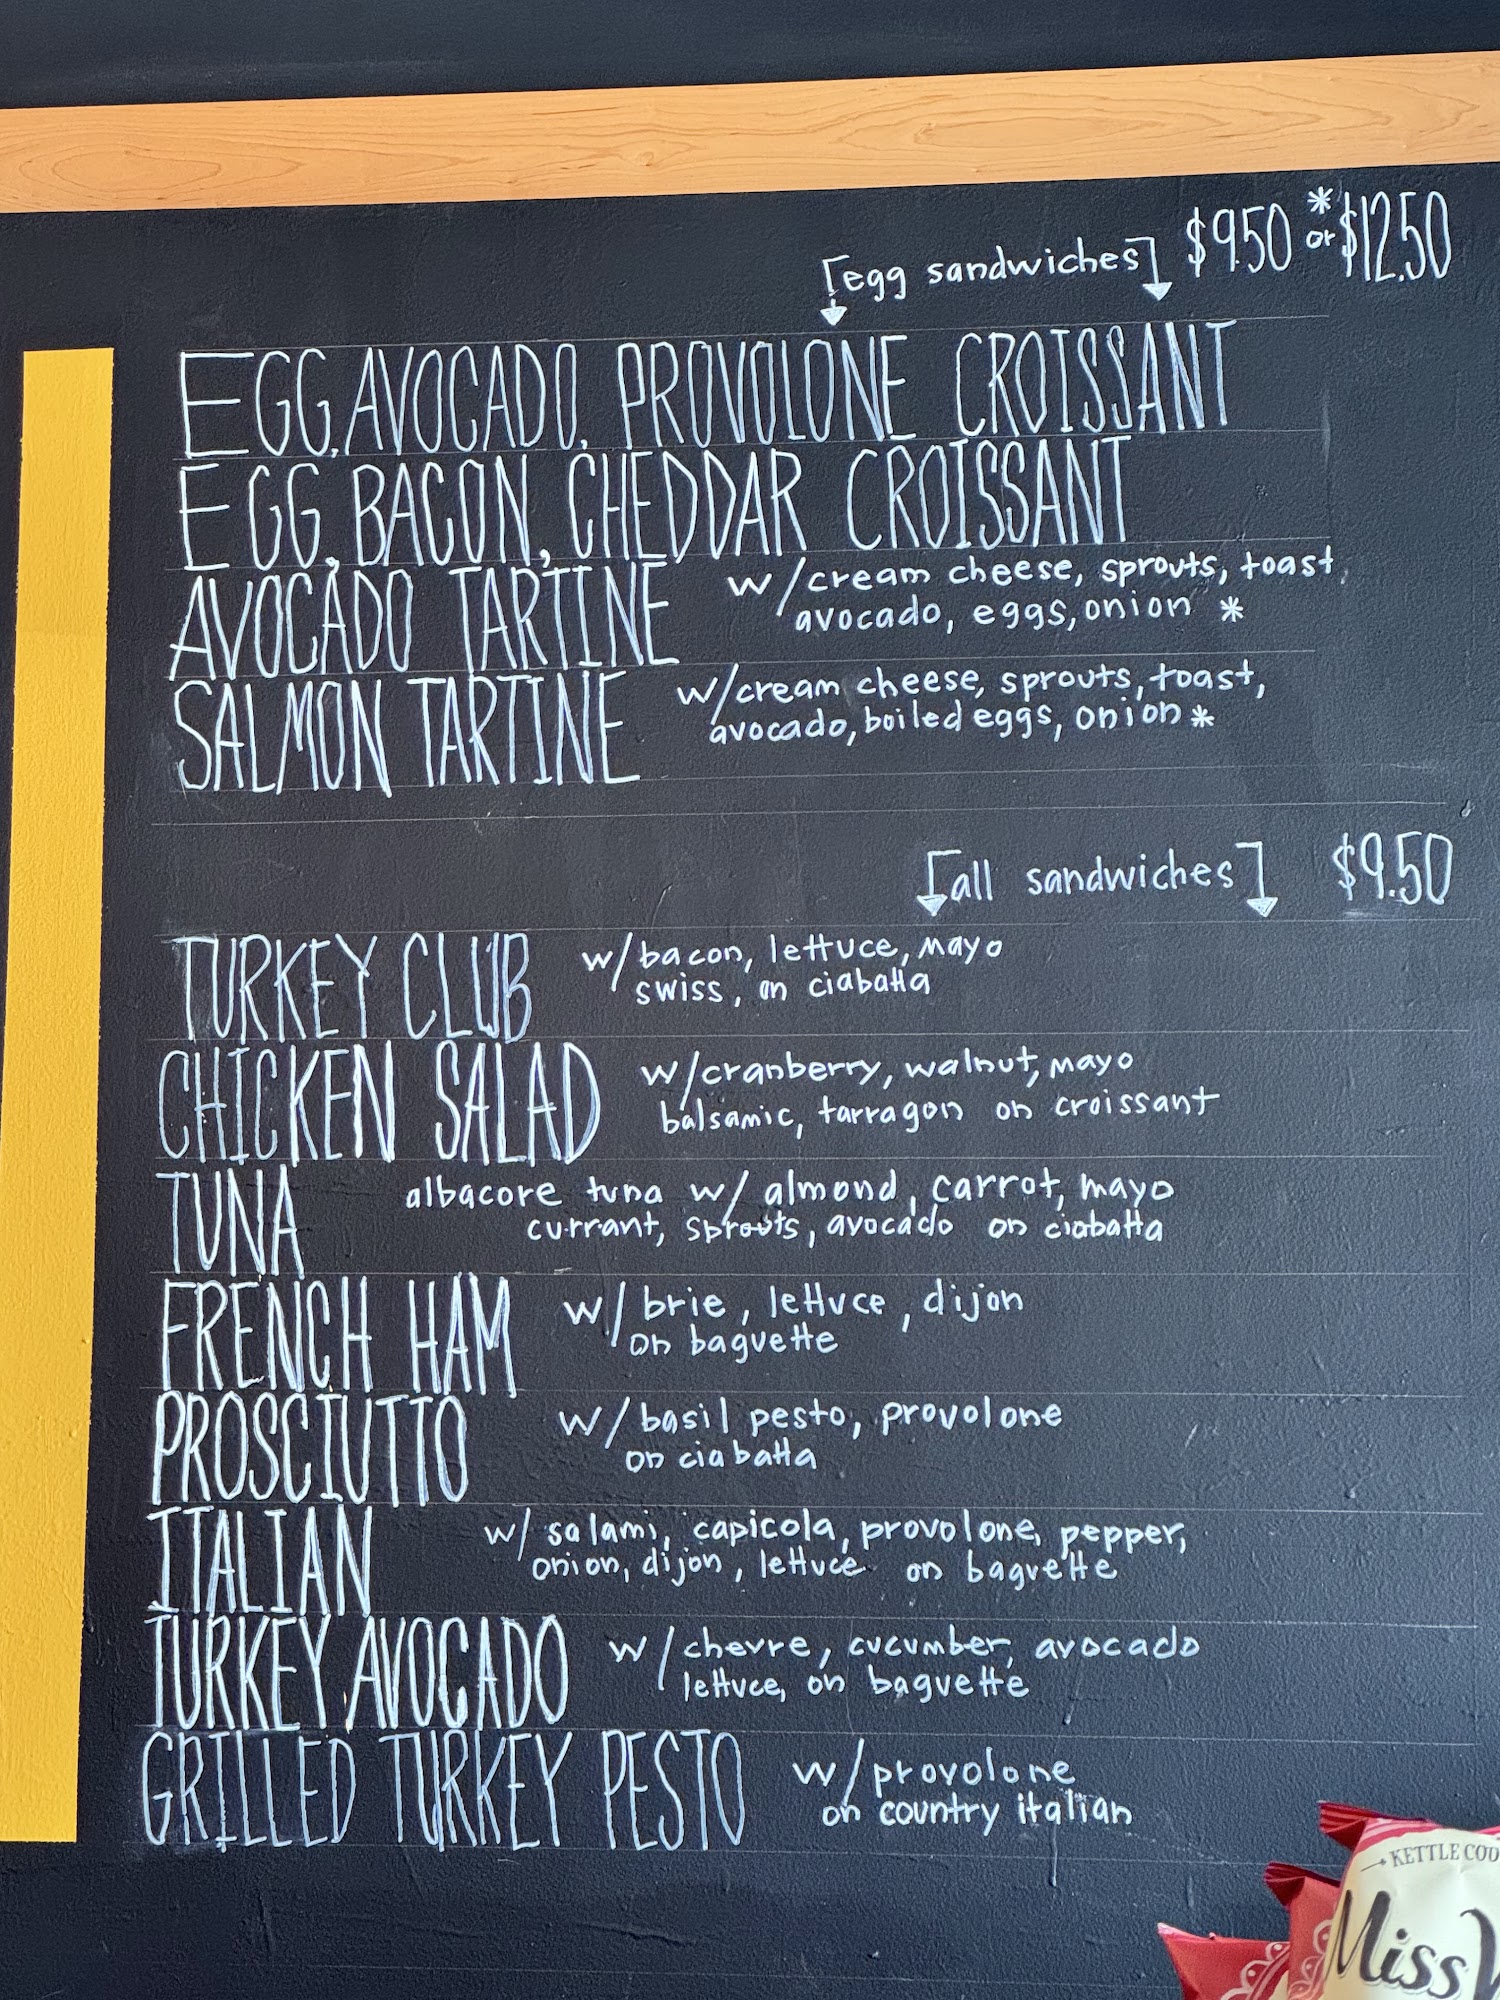 [egg sandwiches] $9.50 *or $12.50
EGG, AVOCADO, PROVOLONE CROISSANT
EGG, BACON, CHEDDAR CROISSANT
AVOCADO TARTINE w/cream cheese, sprouts, toast,
avocado, eggs, onion *
SALMON TARTINE w/cream cheese, sprouts, toast,
avocado, boiled eggs, onion *
[all sandwiches] $9.50
TURKEY CLUB w/bacon, lettuce, mayo
swiss, on ciabatta
CHICKEN SALAD w/cranberry, walnut, mayo
balsamic, tarragon on croissant
TUNA albacore tuna w/ almond, carrot, mayo
currant, sprouts, avocado on ciabatta
FRENCH HAM w/ brie, lettuce, dijon
on baguette
PROSCIUTTO w/basil pesto, provolone
on ciabatta
ITALIAN w/ salami, capicola, provolone, pepper,
onion, dijon, lettuce on baguette
TURKEY AVOCADO w/chevre, cucumber, avocado
lettuce, on baguette
GRILLED TURKEY PESTO w/provolone
on country italian
KETTLE COO
Miss V